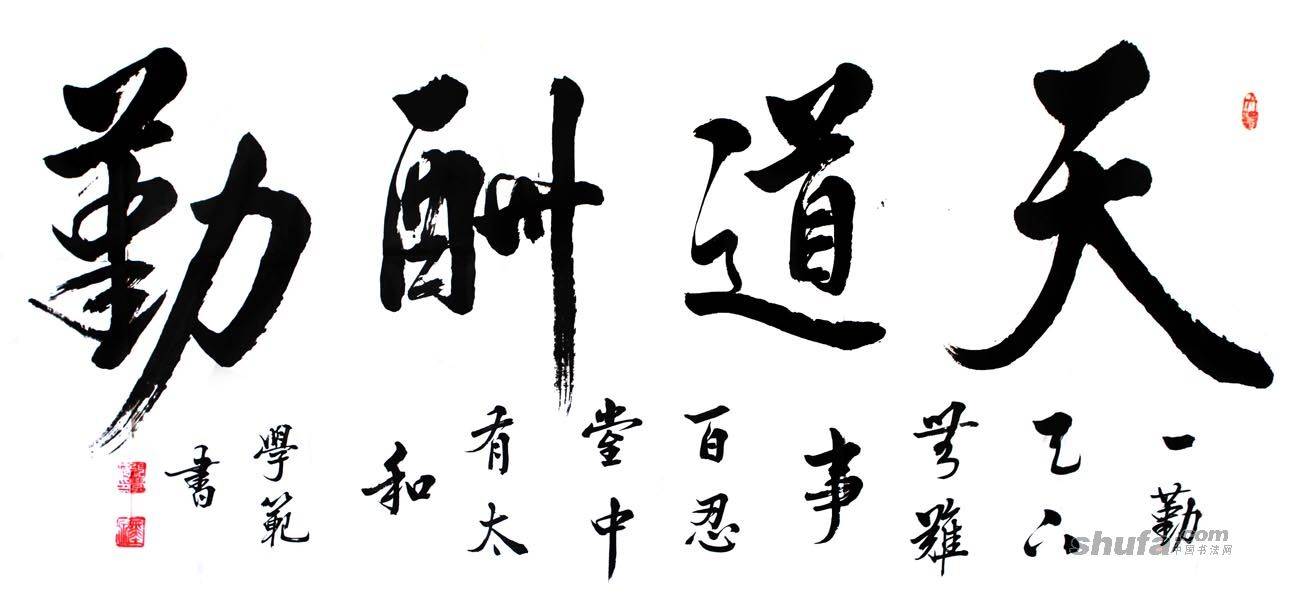 天道酬勤
一勤
天下
無難
事
百忍
堂中
有太
和
學範
書
shufa.com
中国书法网